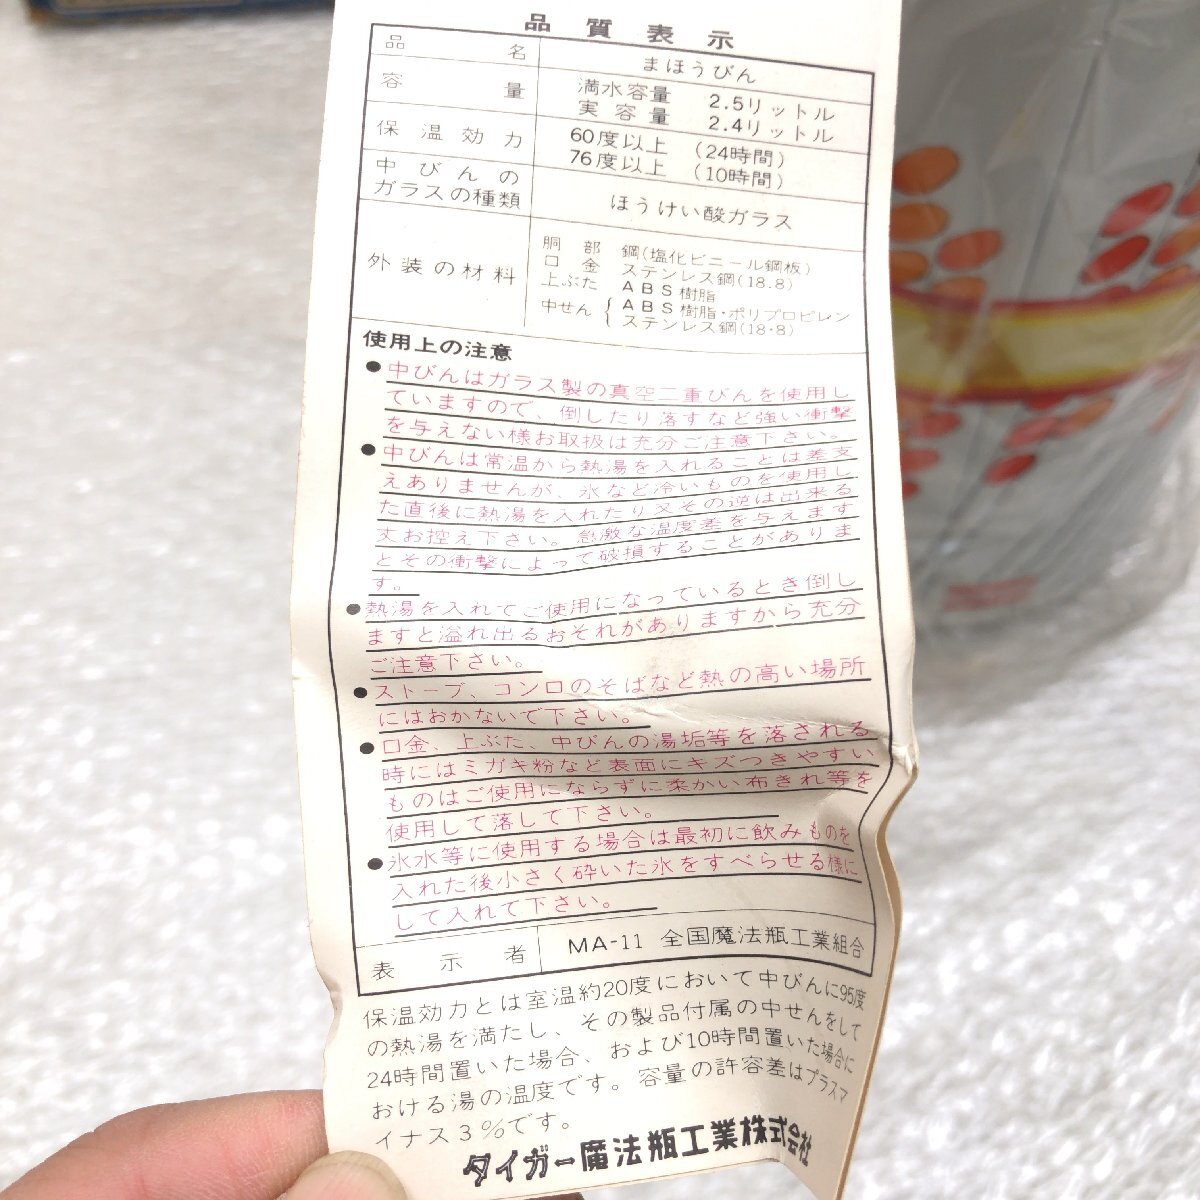 品質表示
品名 まほうびん
容量 満水容量 2.5リットル
実容量 2.4リットル
保温効力 60度以上 (24時間)
76度以上 (10時間)
中びんの
ガラスの種類 ほうけい酸ガラス
外装の材料 胴部 鋼(塩化ビニール鋼板)
口金 ステンレス鋼(18.8)
上ぶた ABS樹脂
中せん { ABS樹脂・ポリプロピレン
ステンレス鋼(18・8)
使用上の注意
●中びんはガラス製の真空二重びんを使用し
ていますので、倒したり落すなど強い衝撃
を与えない様お取扱は充分ご注意下さい。
●中びんは常温から熱湯を入れることは差支
えありませんが、氷など冷いものを使用し
た直後に熱湯を入れたり又その逆は出来る
丈お控え下さい。急激な温度差を与えます
とその衝撃によって破損することがありま
す。
●熱湯を入れてご使用になっているとき倒し
ますと溢れ出るおそれがありますから充分
ご注意下さい。
●ストーブ、コンロのそばなど熱の高い場所
にはおかないで下さい。
●口金、上ぶた、中びんの湯垢等を落される
時にはミガキ粉など表面にキズつきやすい
ものはご使用にならずに柔かい布きれ等を
使用して落して下さい。
●氷水等に使用する場合は最初に飲みものを
入れた後小さく砕いた氷をすべらせる様に
して入れて下さい。
表示者 MA-11 全国魔法瓶工業組合
保温効力とは室温約20度において中びんに95度
の熱湯を満たし、その製品付属の中せんをして
24時間置いた場合、および10時間置いた場合に
おける湯の温度です。容量の許容差はプラスマ
イナス3%です。
タイガー魔法瓶工業株式会社